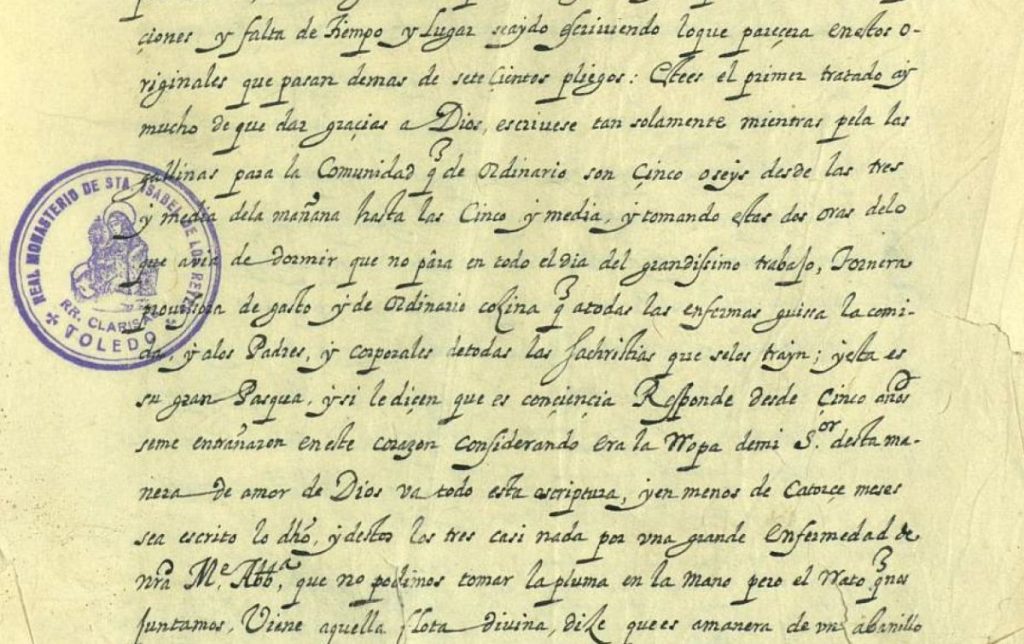 çiones y falta de tiempo y lugar seaydo escriviendo loque pareçera enestos o-
riginales que pasan demas de seteçientos pliegos: Estees el primer tratado ay
mucho de que dar graçias a Dios, escrivese tan solamente mientras pela las
gallinas para la Comunidad q̃ de ordinario son çinco oseys desde las tres
y media dela mañana hasta las Cinco y media, y tomando estas dos oras delo
que avia de dormir que no pâra en todo el dia del grandissimo trabajo, Tornera
provisora de gasto y de ordinario coZina q̃ atodas las enfermas guissa la comi-
da, y alos Padres, y corporales detodas las sachristias que selos trayn; yesta es
su gran Pasqua, ysi le diçen que es conçiençia Responde desde çinco años
seme entrañaron eneste corazon considerando era la Ropa demi S.or desta ma-
nera de amor de Dios va todo esta escriptura, yen menos de Catorçe meses
sea escrito lo dho, ydestos los tres casi nada por vna grande enfermedad de
nrã M.e Abb.a, que no podimos tomar la pluma en la mano pero el Rato q̃ nos
juntamos, Viene aquella flota divina, diZe quees amanera de vn abanillo
REAL MONASTERIO DE STA. ISABEL DE LOS REYES
RR. CLARISAS
* TOLEDO *